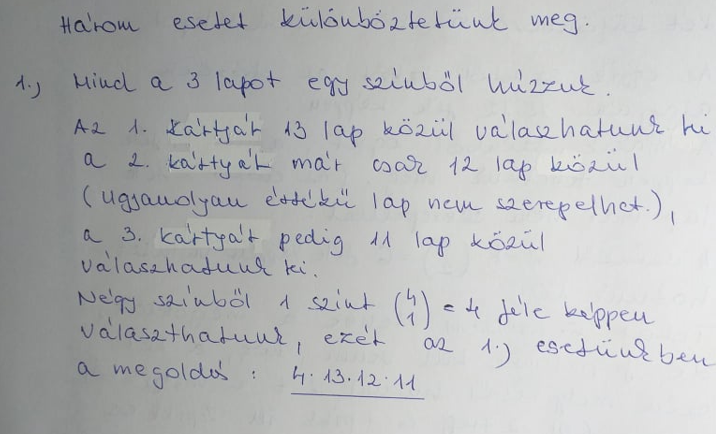 Három esetet különböztetünk meg.
1.) Mind a 3 lapot egy színből húzzuk.
Az 1. kártyát 13 lap közül választhatunk ki
a 2. kártyát már csak 12 lap közül
(ugyanolyan értékű lap nem szerepelhet.),
a 3. kártyát pedig 11 lap közül
választhatunk ki.
Négy színből 1 színt (4 1) = 4 féle képpen
választhatunk, ezért az 1.) esetünkben
a megoldás: 4·13·12·11